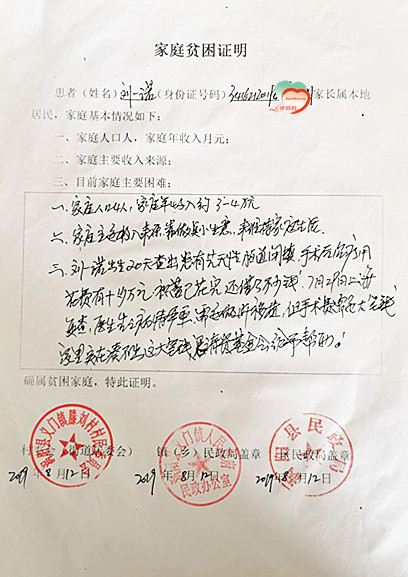 家庭贫困证明
患者（姓名）刘一诺（身份证号码）家长属本地
居民，家庭基本情况如下：
一、家庭人口人，家庭年收入月元；
二、家庭主要收入来源；
三、目前家庭主要困难：
一、家庭人口4人，家庭年收入约3-4万元
二、家庭主要收入来源 靠做点小生意，来维持家庭生活
三、刘一诺出生20天查出患有先天性胆道闭锁，手术后治疗用
花费有十多万元，积蓄已花完，还借了不少钱，7月29日上海
复查，医生告诉病情严重，需要做肝移植，但手术费需要大笔钱
家里实在凑不出这大笔钱 基金会给予帮助！
确属贫困家庭，特此证明。
村 委会） 镇（乡）民政局盖章 区民政局盖章
2019年8月12日 2019年8月12日 2019年8月12日
义门镇滕刘村村民委员会
义门镇人民政府
民政办公室
县民政局